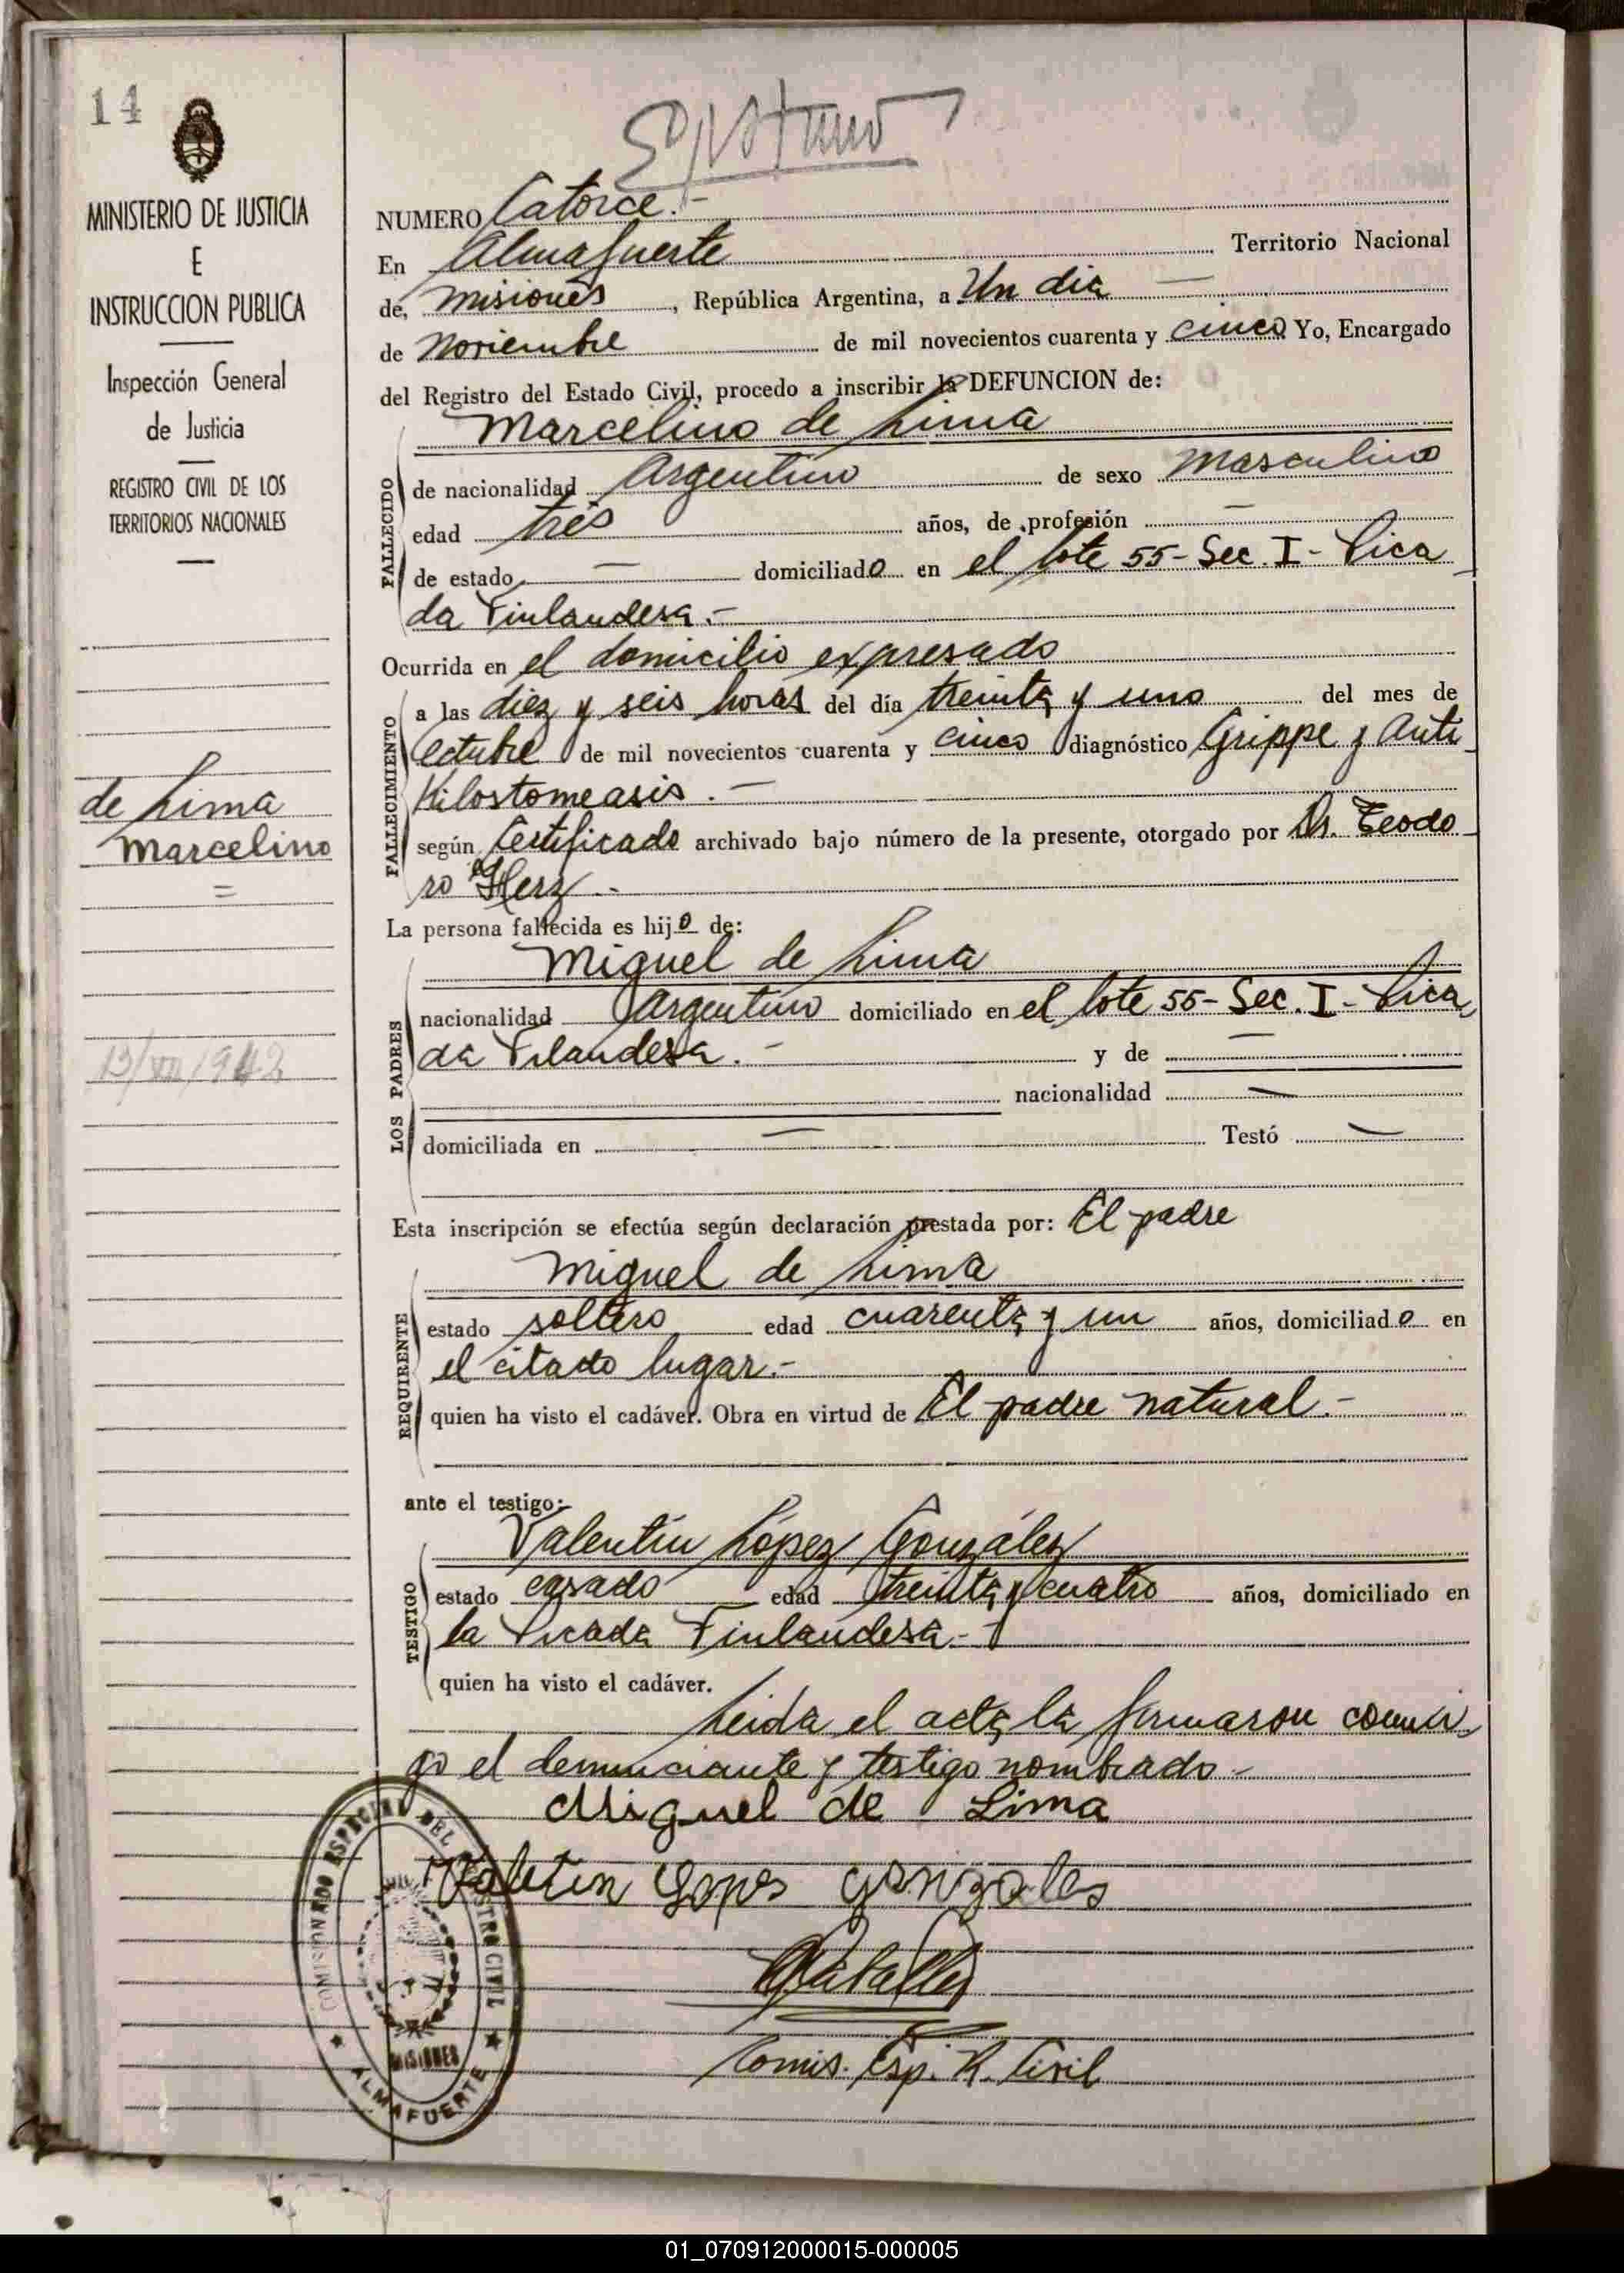 14
MINISTERIO DE JUSTICIA
E
INSTRUCCION PUBLICA
Inspección General
de Justicia
REGISTRO CIVIL DE LOS
TERRITORIOS NACIONALES
de Lima
Marcelino
13/VII/1942
NUMERO Catorce.-
En Almafuerte Territorio Nacional
de, Misiones, República Argentina, a Un dia —
de Noviembre de mil novecientos cuarenta y cinco Yo, Encargado
del Registro del Estado Civil, procedo a inscribir la DEFUNCION de:
Marcelino de Lima
FALLECIDO
de nacionalidad Argentino de sexo Masculino
edad tres años, de profesión —
de estado — domiciliado en el lote 55- Sec. I- Pica
da Finlandesa.-
Ocurrida en el domicilio expresado
FALLECIMIENTO
a las diez y seis horas del día treinta y uno del mes de
Octubre de mil novecientos cuarenta y cinco diagnóstico Grippe y Anki
kilostomeasis.-
según Certificado archivado bajo número de la presente, otorgado por Dr. Teodo
ro Herz.-
La persona fallecida es hijo de:
Miguel de Lima
LOS PADRES
nacionalidad Argentino domiciliado en el lote 55- Sec. I- Pica
da Filandesa.- y de —
nacionalidad —
domiciliada en — Testó —
Esta inscripción se efectúa según declaración prestada por: El padre
Miguel de Lima
REQUIRENTE
estado soltero edad cuarenta y un años, domiciliado en
el citado lugar.-
quien ha visto el cadáver. Obra en virtud de El padre natural.-
ante el testigo:-
Valentín López González
TESTIGO
estado casado edad treinta y cuatro años, domiciliado en
la Picada Finlandesa.-
quien ha visto el cadáver.
Leida el acta, la firmaron conmi
go el denunciante y testigo nombrado-
Miguel de Lima
Valetin Lopes gonzales
Comis. Esp. R. Civil
COMISIONADO ESPECIAL DEL REGISTRO CIVIL
MISIONES
ALMAFUERTE
01_070912000015-000005